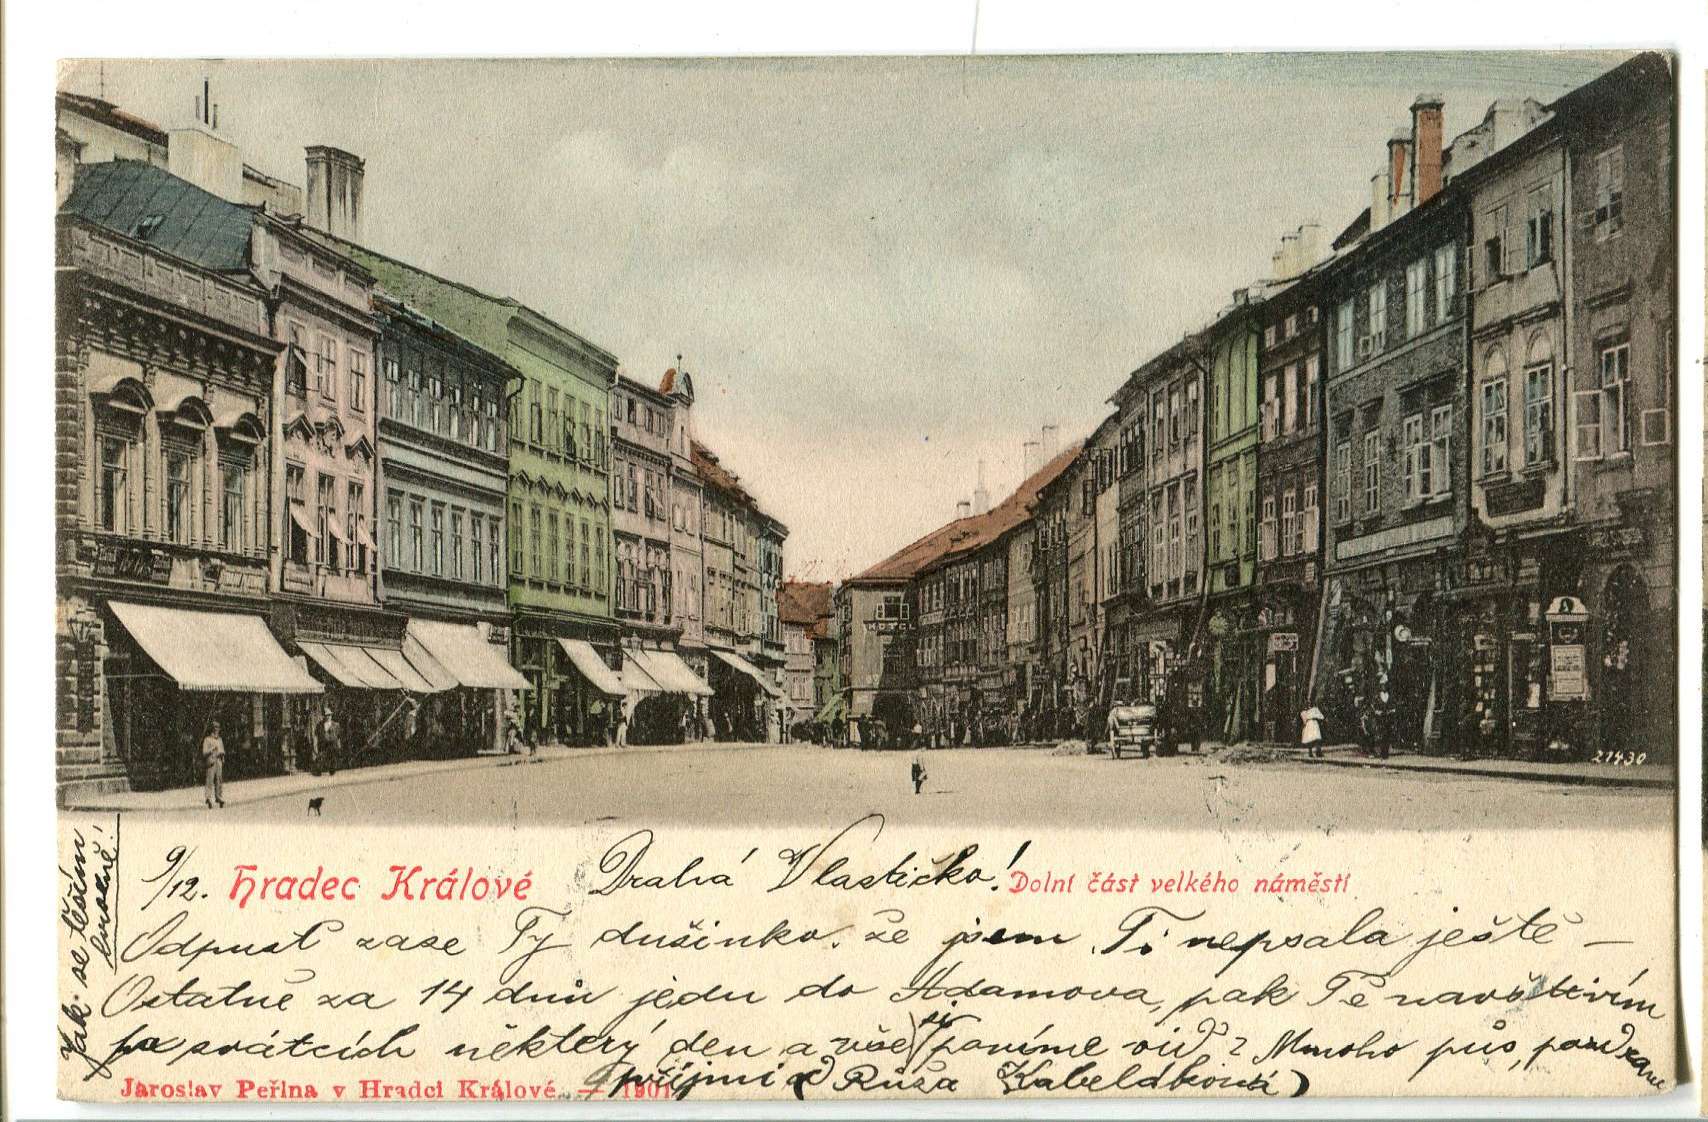 HOTEL
27430
9/12. Hradec Králové Drahá Vlastičko! Dolní část velkého náměstí
Odpusť zase Ty dušinko, že jsem Ti nepsala ještě —
Ostatně za 14 dnů jedu do Adamova, pak Tě navštívím
po svátcích některý den a vše si povíme viď? Mnoho pus, pozdrav
přijmi od Růža Kabeláková
Jaroslav Peřina v Hradci Králové. — 1901
Jak se těším